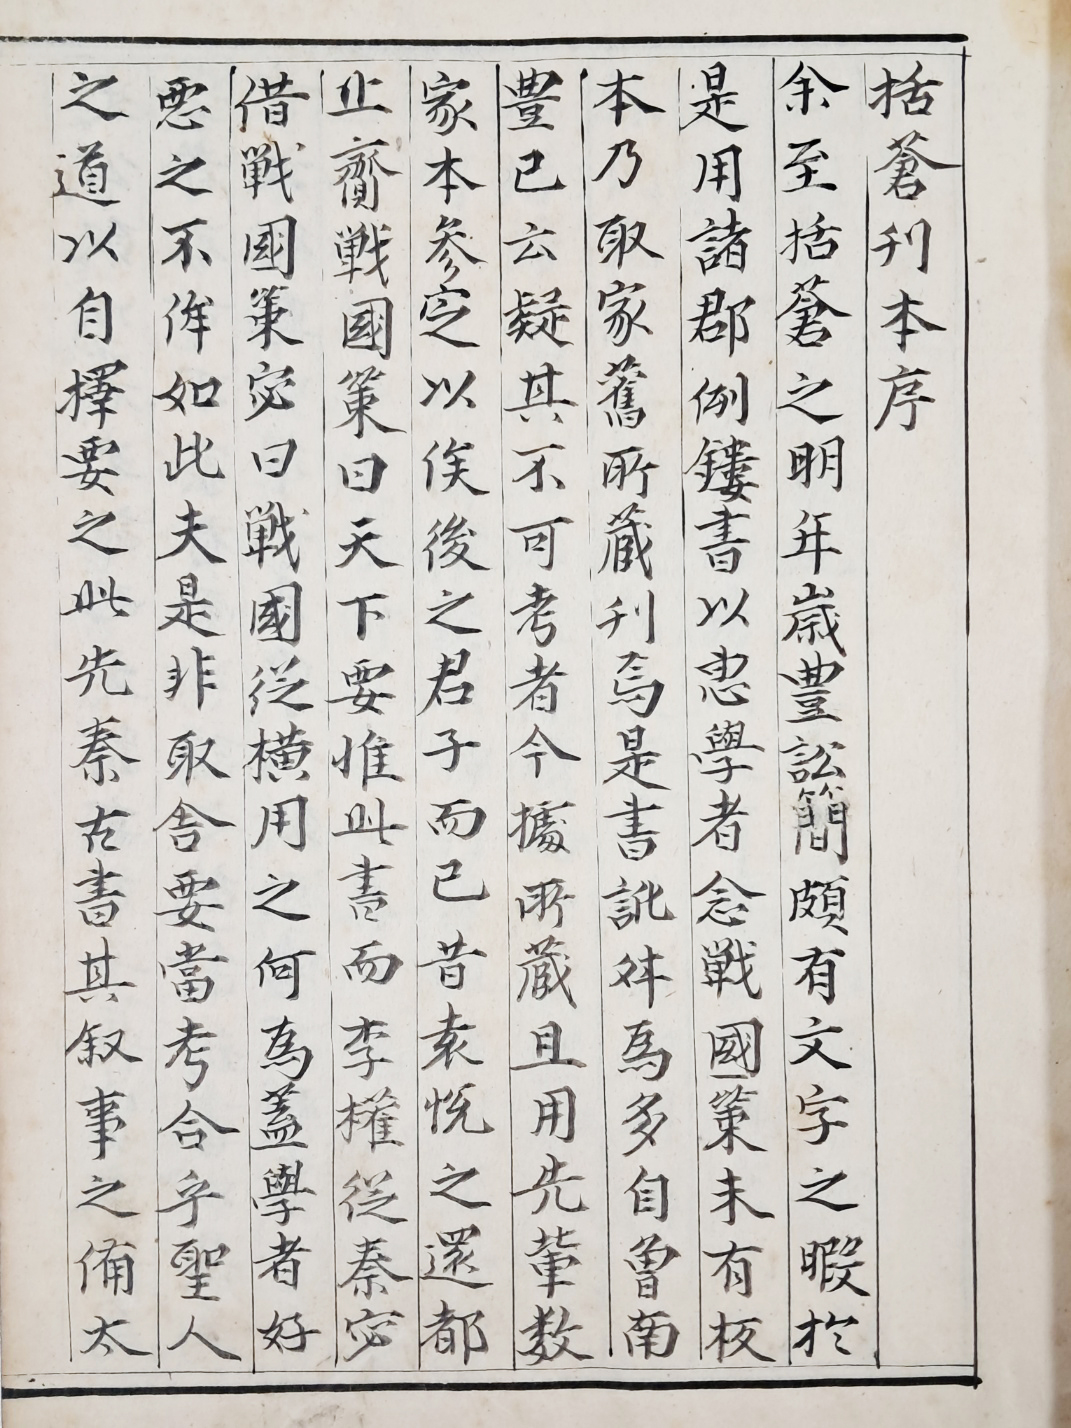 括蒼刊本序
余至括蒼之明年歲豊訟簡頗有文字之暇於
是用諸郡例鏤書以恵學者念戦國策未有板
本乃取家舊所蔵刊焉是書訛舛為多自曽南
豊已云疑其不可考者今據所蔵且用先軰数
家本參定以俟後之君子而已昔袁悦之還都
止齎戦國策曰天下要惟此書而李權従秦宓
借戦國策宓曰戦國従横用之何為葢學者好
悪之不侔如此夫是非取舎要當考合乎聖人
之道以自擇要之此先秦古書其叙事之備太